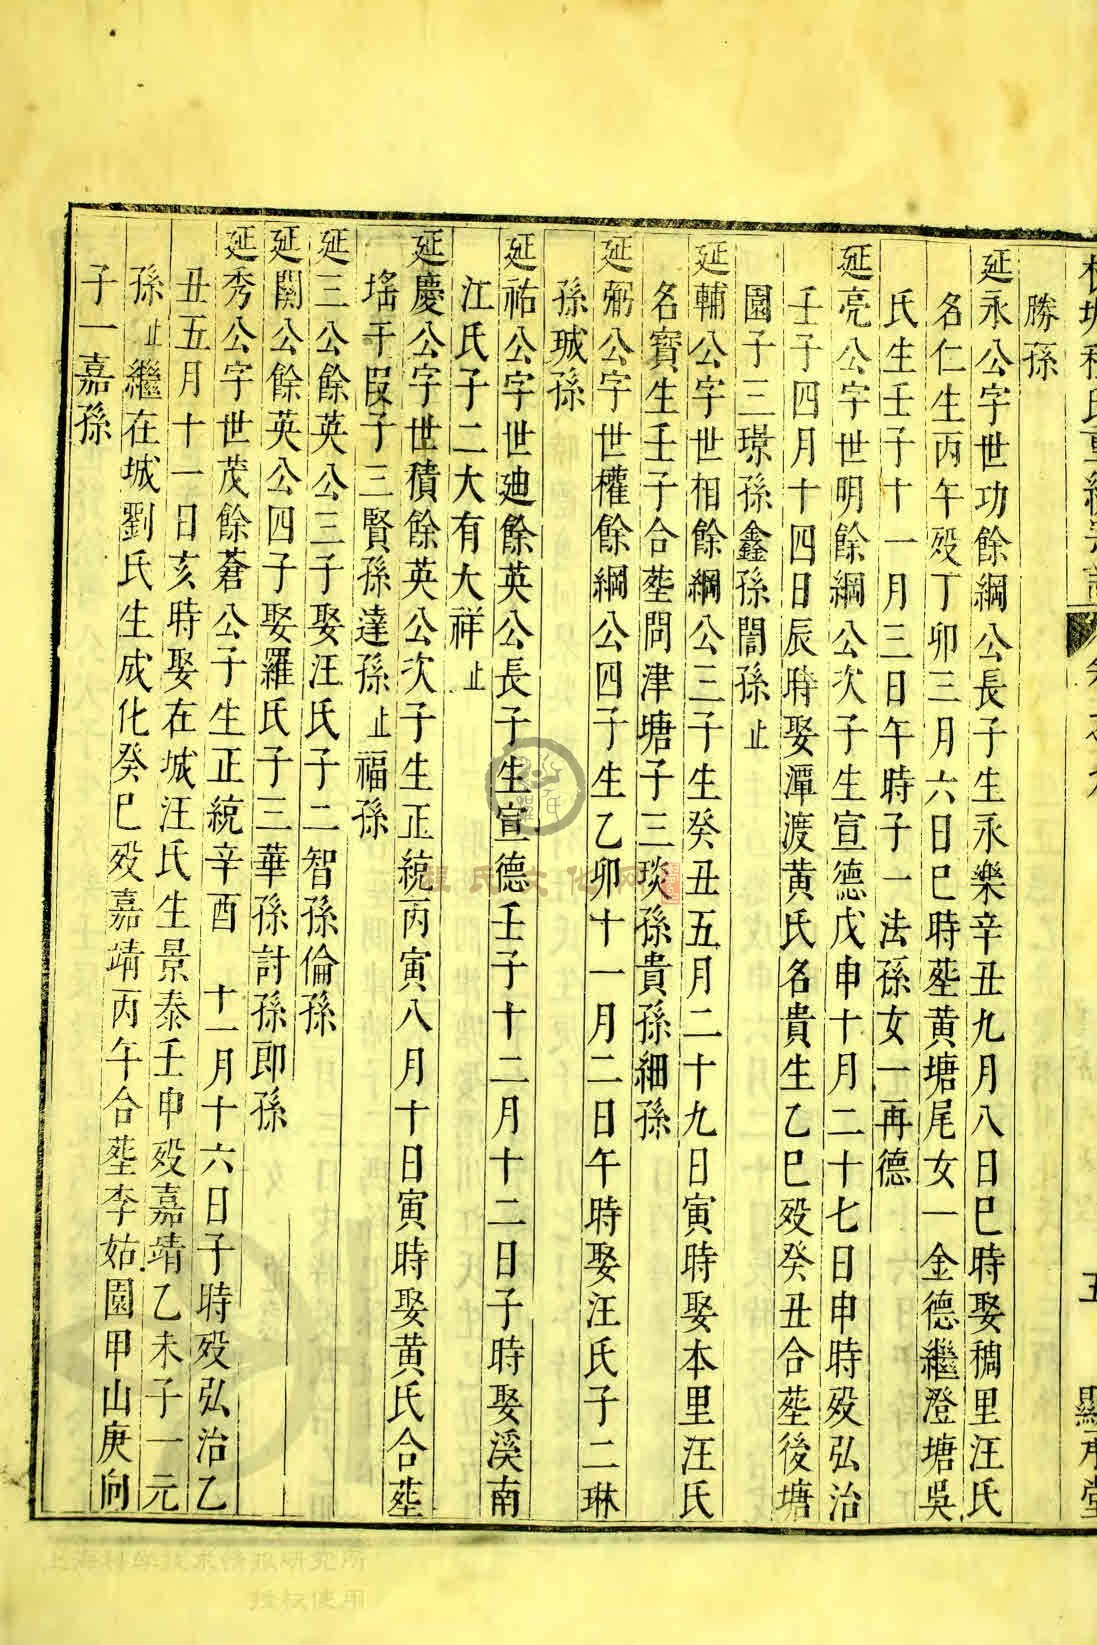 勝孫
延永公字世功餘綱公長子生永樂辛丑九月八日巳時娶稠里汪氏
名仁生丙午殁丁卯三月六日巳時塟黄塘尾女一金德繼澄塘吳
氏生壬子十一月三日午時子一法孫女一再德
延亮公字世明餘綱公次子生宣德戊申十月二十七日申時殁弘治
壬子四月十四日辰時娶潭渡黄氏名貴生乙巳殁癸丑合塟後塘
園子三璟孫鑫孫誾孫止
延輔公字世相餘綱公三子生癸丑五月二十九日寅時娶本里汪氏
名寶生壬子合塟問津塘子三琰孫貴孫細孫
延弼公字世權餘綱公四子生乙卯十一月二日午時娶汪氏子二琳
孫珹孫
延祐公字世廸餘英公長子生宣德壬子十二月十二日子時娶溪南
江氏子二大有大祥止
延慶公字世積餘英公次子生正統丙寅八月十日寅時娶黄氏合塟
塔干叚子三賢孫達孫止福孫
延三公餘英公三子娶汪氏子二智孫倫孫
延關公餘英公四子娶羅氏子三華孫討孫即孫
延秀公字世茂餘蒼公子生正統辛酉十一月十六日子時殁弘治乙
丑五月十一日亥時娶在城汪氏生景泰壬申殁嘉靖乙未子一元
孫止繼在城劉氏生成化癸巳殁嘉靖丙午合塟李姑園甲山庚向
子一嘉孫
程氏文化网
上海科学技术情报研究所
授权使用